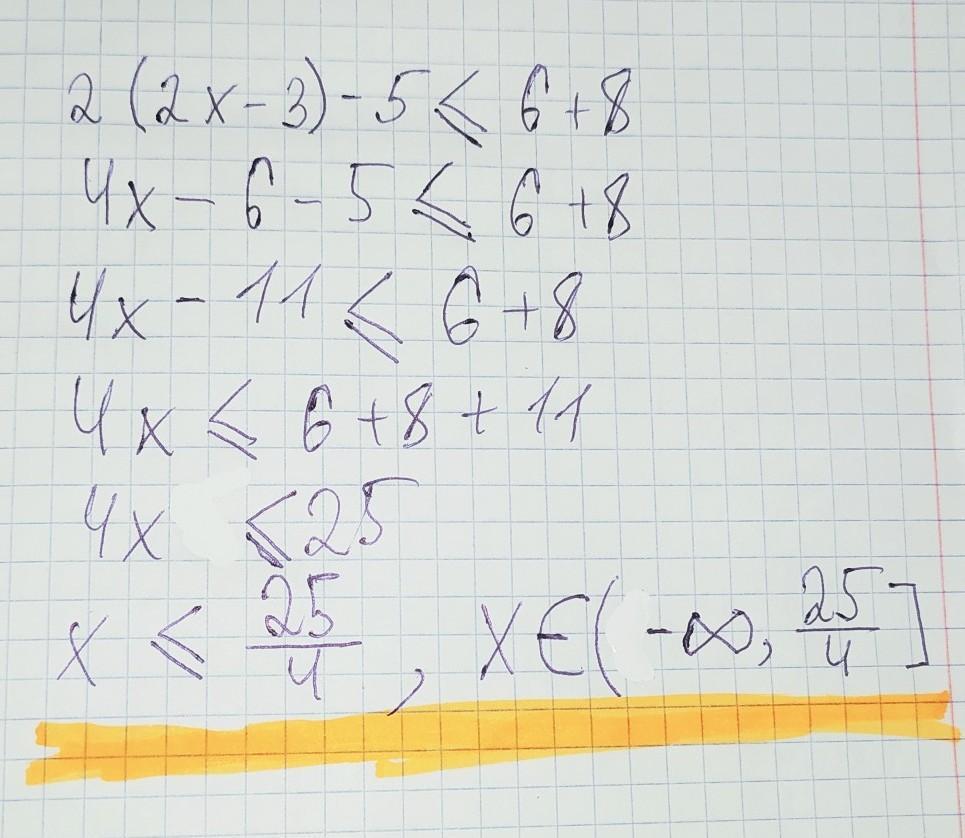 2(2x-3)-5⩽6+8
4x-6-5⩽6+8
4x-11⩽6+8
4x⩽6+8+11
4x⩽25
x⩽25/4, x∈(-∞, 25/4]